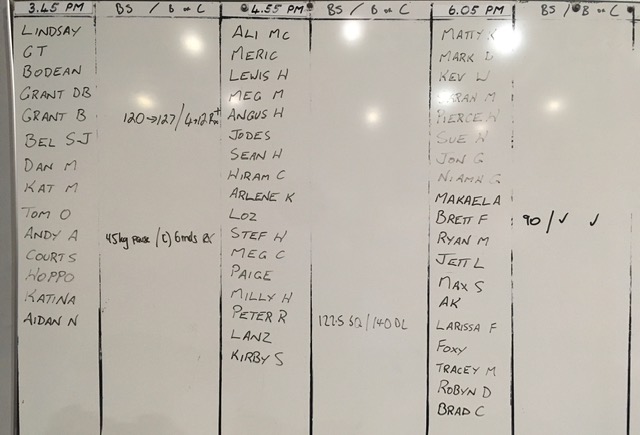 3.45 PM BS / B or C
LINDSAY
GT
BODEAN
GRANT DB
GRANT B 120→127/4+12Rx+
BEL S-J
DAN M
KAT M
TOM O
ANDY A 45kg pause /(C) 6rnds RX
COURT S
HOPPO
KATINA
AIDAN N
4.55 PM BS / B or C
ALI MC
MERIC
LEWIS H
MEG M
ANGUS H
JODES
SEAN H
HIRAM C
ARLENE K
LOZ
STEF H
MEG C
PAIGE
MILLY H
PETER R 122.5 SQ / 140 DL
LANZ
KIRBY S
6.05 PM BS / B or C
MATTY K
MARK D
KEV W
SARAN M
PIERCE W
SUE W
JON G
NIAMH G
MAKAELA
BRETT F 90 / ✓ ✓
RYAN M
JETT L
MAX S
AK
LARISSA F
FOXY
TRACEY M
ROBYN D
BRAD C